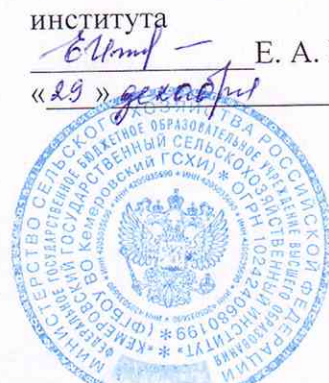 института
Е. А.
« 29 » декабря
МИНИСТЕРСТВО СЕЛЬСКОГО ХОЗЯЙСТВА РОССИЙСКОЙ ФЕДЕРАЦИИ
ФЕДЕРАЛЬНОЕ ГОСУДАРСТВЕННОЕ БЮДЖЕТНОЕ ОБРАЗОВАТЕЛЬНОЕ УЧРЕЖДЕНИЕ ВЫСШЕГО ОБРАЗОВАНИЯ
«КЕМЕРОВСКИЙ ГОСУДАРСТВЕННЫЙ СЕЛЬСКОХОЗЯЙСТВЕННЫЙ ИНСТИТУТ»
(ФГБОУ ВО Кемеровский ГСХИ) * ОГРН 1024240680199 *